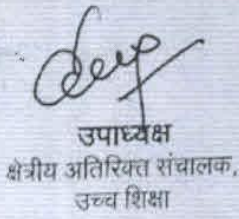 उपाध्यक्ष
क्षेत्रीय अतिरिक्त संचालक,
उच्च शिक्षा